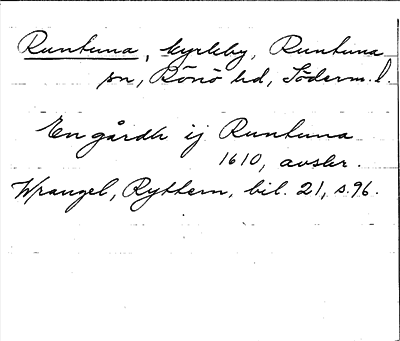 Runtuna, kyrkby, Runtuna
sn, Rönö hd, Söderm. l.
En gårdh ij Runtuna
1610, avskr.
Wrangel, Ryttern, bil. 21, s. 96.